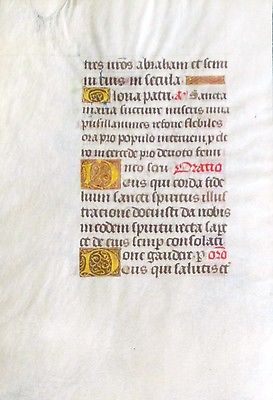 tres n̄ros abraham et semi
ni eius in secula
Gloria patri. a Sancta
maria succurre miseris iuva
pusillanimes refove flebiles
ora pro populo interveni p cle
ro intercede pro devoto femi
neo sexu Oratio
Deus qui corda fide
lium sancti spiritus illus
tracione docuisti da nobis
in eodem spiritu recta sape
re et de eius semp consolaci
one gaudere. p oro
Deus qui salutis et